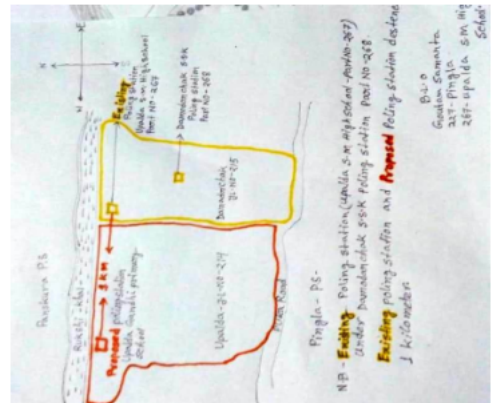 Panskura P.S
Rakshi-khal
N
Existing
Poling station
Upalda S.m High school
Part NO-267
Damodarchak S.S.K
Poling station
Part NO-268
1 KM
Proposed poling station
Upalda
primary
school
Upalda-JL-NO-214
JL-NO-215
Road
Pingla - PS-
N.B- Existing Poling station (Upalda S.m High school-Part No-267)
under Damodarchak S.S.K Poling station Part NO-268.
Existing poling station and Proposed Poling station
1 kilometer
B.L.O
Goutam Samanta
227-Pingla
267-Upalda S.m Hig
School-